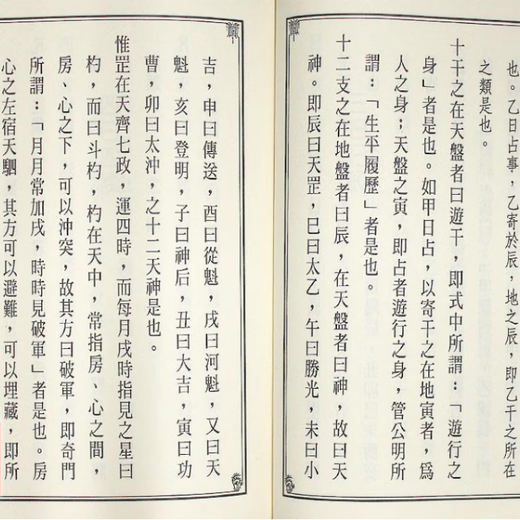 也。乙日占事，乙寄於辰，地之辰，即乙干之所在
之類是也。
十干之在天盤者曰遊干，即式中所謂：「遊行之
身」者是也。如甲日占，以寄干之在地寅者，為
人之身；天盤之寅，即占者遊行之身，管公明所
謂：「生平履歷」者是也。
十二支之在地盤者曰辰，在天盤者曰神，故曰天
神。即辰曰天罡，巳曰太乙，午曰勝光，未曰小
吉，申曰傳送，酉曰從魁，戌曰河魁，又曰天
魁，亥曰登明，子曰神后，丑曰大吉，寅曰功
曹，卯曰太沖，之十二天神是也。
惟罡在天齊七政，運四時，而每月戌時指見之星曰
杓，而曰斗杓，杓在天中，常指房、心之間，
房、心之下，可以沖突，故其方曰破軍，即奇門
所謂：「月月常加戌，時時見破軍」者是也。房
心之左宿天駟，其方可以避難，可以埋藏，即所